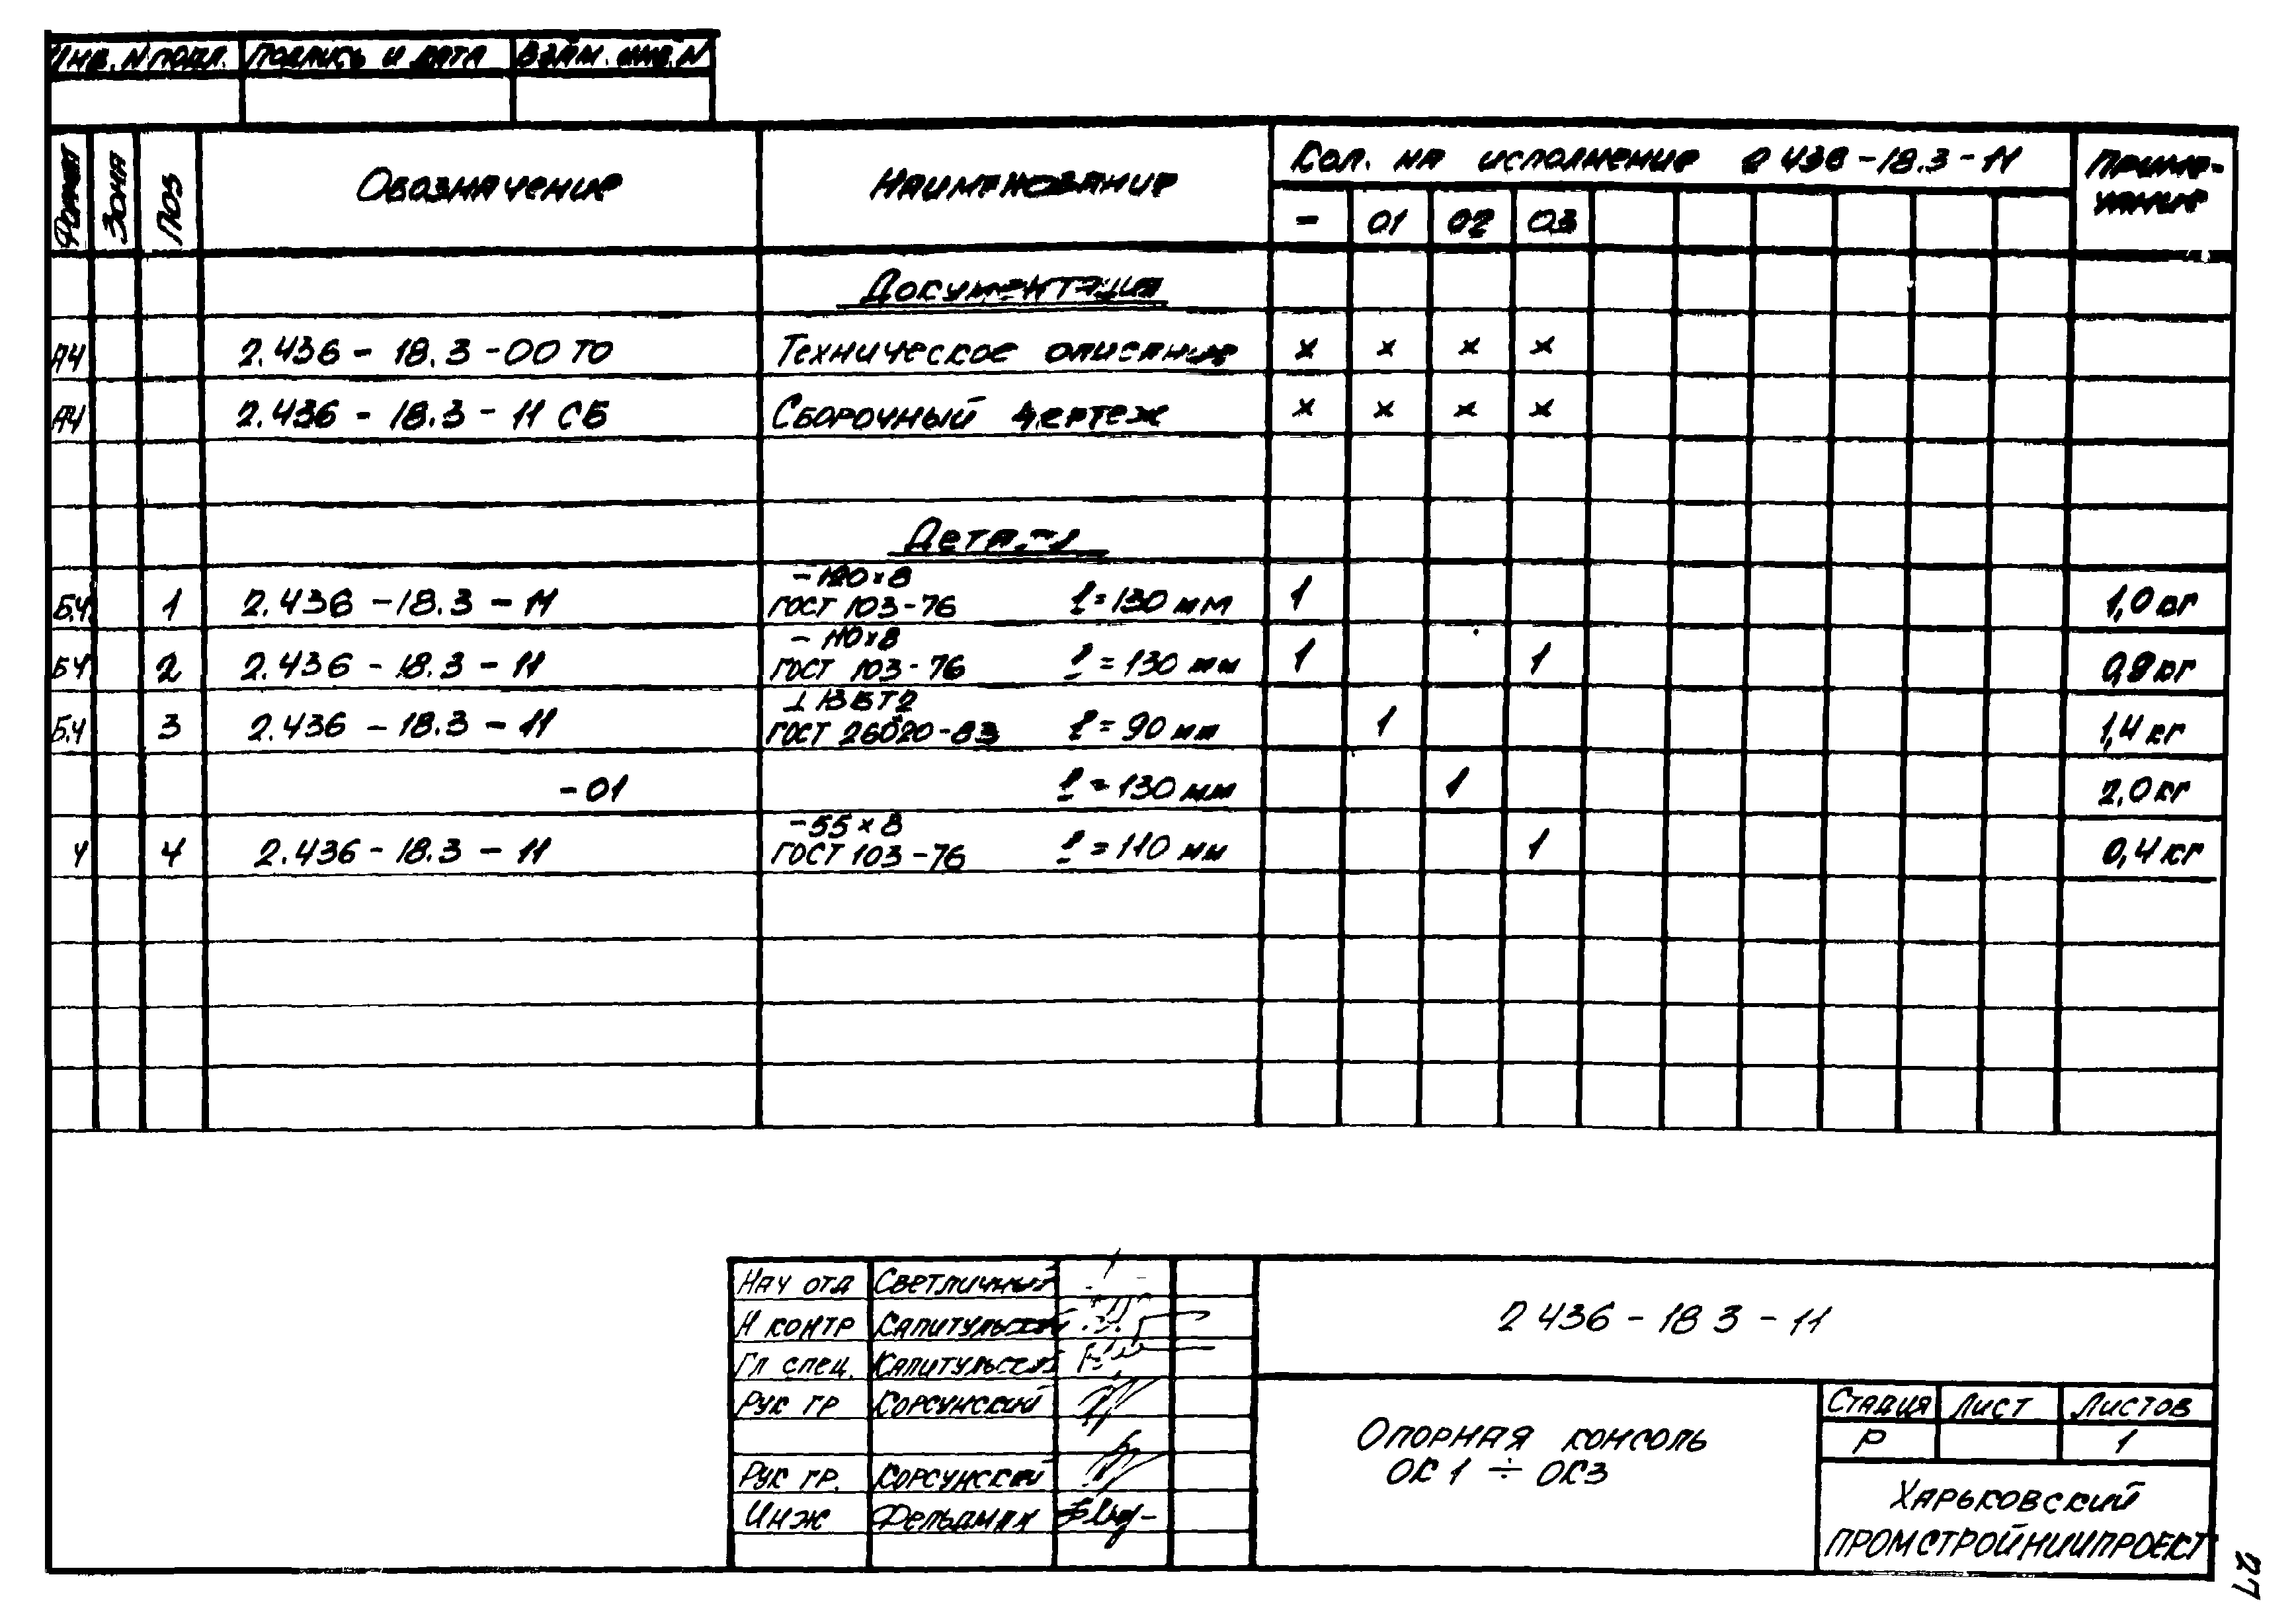 Инв. N подл. Подпись и дата Взам. инв. N
Формат Зона Поз Обозначение Наименование Кол. на исполнение 2 436 - 18.3 - 11 Приме-
чание
- 01 02 03
Документация
А4 2.436 - 18.3 - 00 ТО Техническое описание х х х х
А4 2.436 - 18.3 - 11 СБ Сборочный чертеж х х х х
Детали
- 120 х 8
Б.Ч. 1 2.436 - 18.3 - 11 ГОСТ 103-76 l = 130 мм 1 1,0 кг
- 110 х 8
БЧ 2 2.436 - 18.3 - 11 ГОСТ 103-76 l = 130 мм 1 1 0,9 кг
⊥ 13 БТ2
Б.Ч 3 2.436 - 18.3 - 11 ГОСТ 26020-83 l = 90 мм 1 1,4 кг
- 01 l = 130 мм 1 2,0 кг
- 55 х 8
Ч 4 2.436 - 18.3 - 11 ГОСТ 103-76 l = 110 мм 1 0,4 кг
Нач отд Светличный
Н контр Капитульский
Гл спец. Капитульский
Рук гр Корсунский
Рук гр. Корсунский
Инж Фельдман
2 436 - 18 3 - 11
Опорная консоль
ОК 1 ÷ ОК3
Стадия Лист Листов
Р 1
Харьковский
ПРОМСТРОЙНИИПРОЕКТ
27